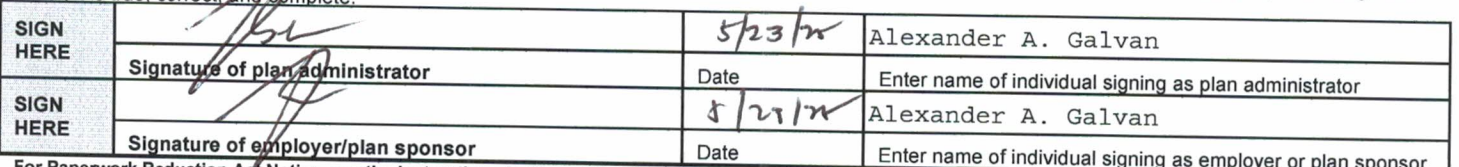 correct, and complete.
SIGN HERE
5/23/25 Alexander A. Galvan
Signature of plan administrator Date Enter name of individual signing as plan administrator
SIGN HERE
Alexander A. Galvan
Signature of employer/plan sponsor Date Enter name of individual signing as employer or plan sponsor
For Paperwork Reduction Act